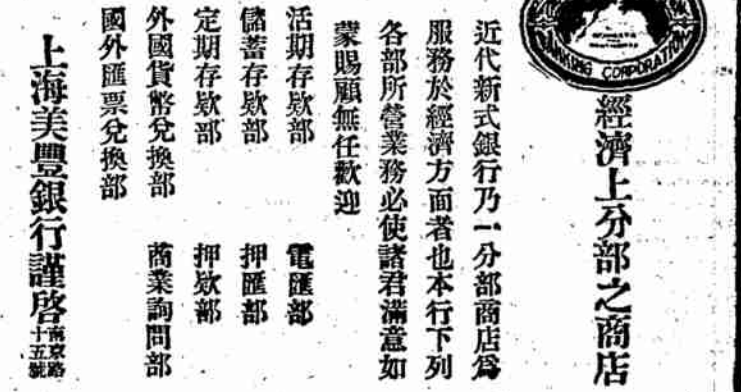 BANKING CORPORATION
經濟上分部之商店
近代新式銀行乃一分部商店爲
服務於經濟方面者也本行下列
各部所營業務必使諸君滿意如
蒙賜顧無任歡迎
活期存欵部
電匯部
儲蓄存欵部
押匯部
定期存欵部
押欵部
外國貨幣兌換部
商業詢問部
國外匯票兌換部
上海美豐銀行謹啓
南京路
十五號